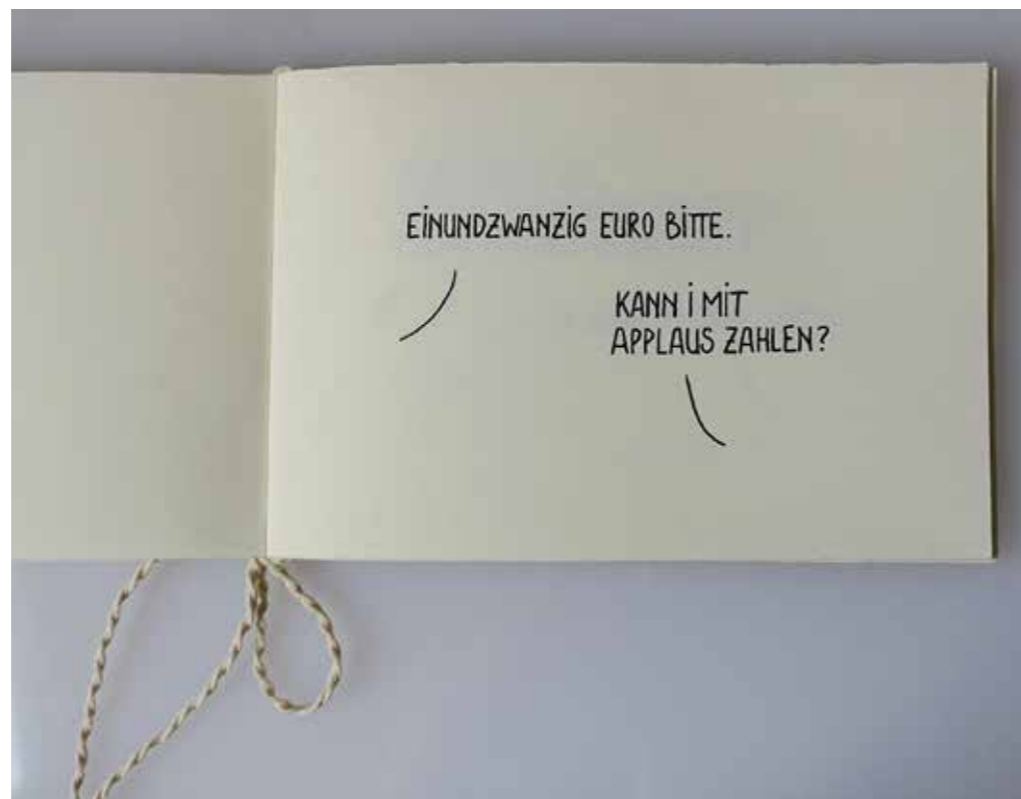 EINUNDZWANZIG EURO BITTE.
KANN I MIT
APPLAUS ZAHLEN?